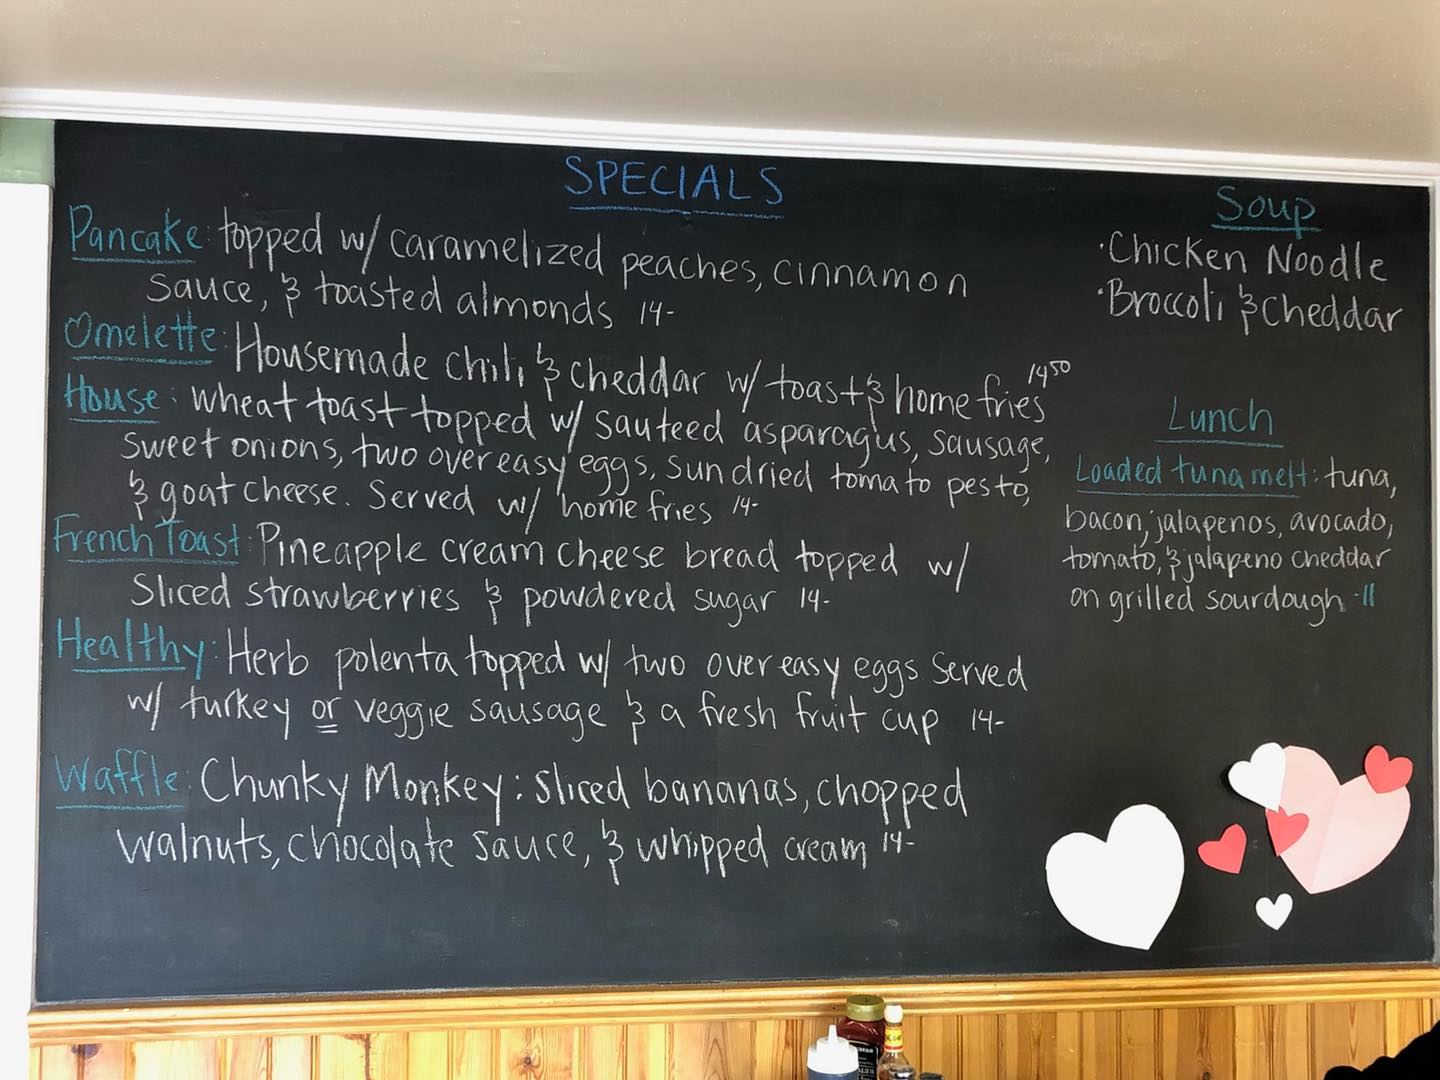 SPECIALS
Pancake: topped w/ caramelized peaches, cinnamon
sauce, & toasted almonds 14-
Omelette: Housemade chili & cheddar w/ toast & home fries 14.50
House: wheat toast topped w/ sauteed asparagus, sausage,
sweet onions, two over easy eggs, sun dried tomato pesto,
& goat cheese. Served w/ home fries 14-
French Toast: Pineapple cream cheese bread topped w/
sliced strawberries & powdered sugar 14-
Healthy: Herb polenta topped w/ two over easy eggs served
w/ turkey or veggie sausage & a fresh fruit cup 14-
Waffle: Chunky Monkey: sliced bananas, chopped
walnuts, chocolate sauce, & whipped cream 14-
Soup
·Chicken Noodle
·Broccoli & cheddar
Lunch
Loaded tuna melt: tuna,
bacon, jalapenos, avocado,
tomato, & jalapeno cheddar
on grilled sourdough -11